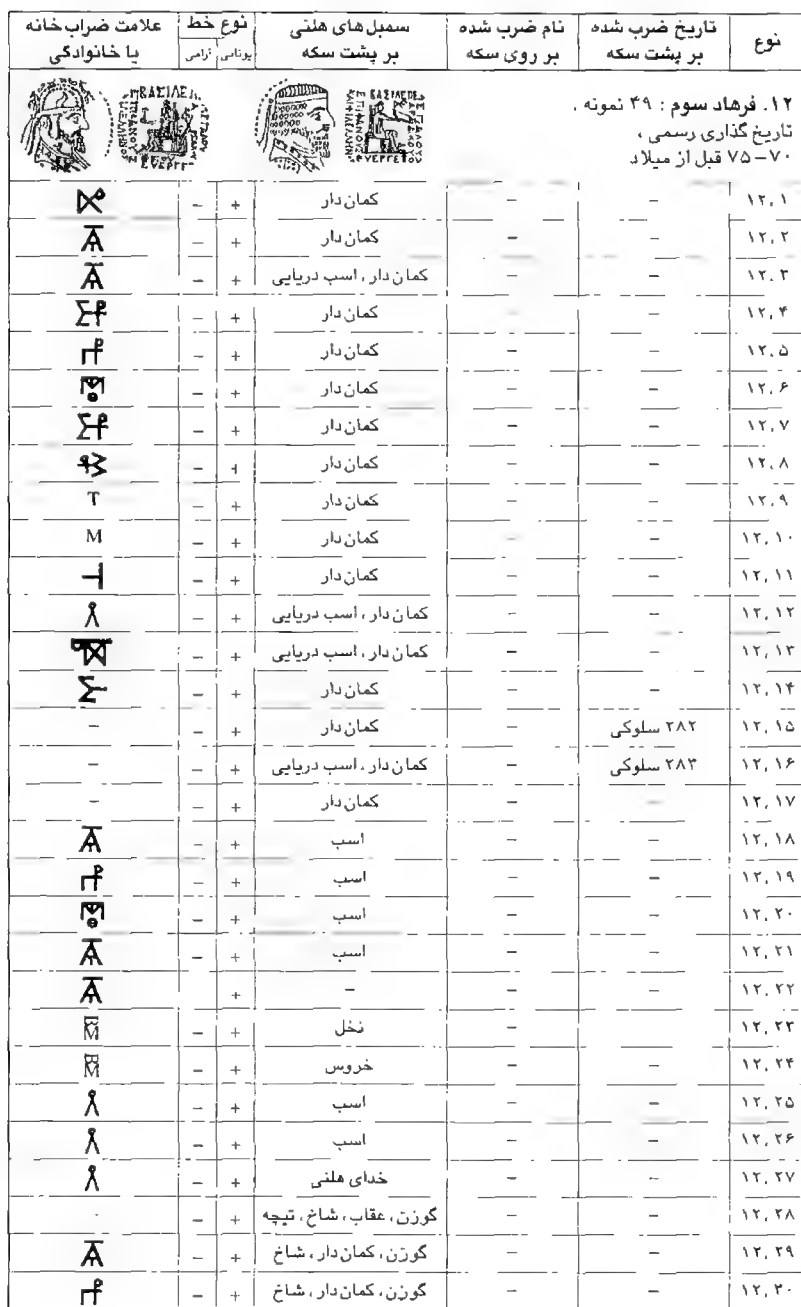 نوع | تاریخ ضرب شده بر پشت سکه | نام ضرب شده بر روی سکه | سمبل‌های هلنی بر پشت سکه | نوع خط یونانی | آرامی | علامت ضرابخانه یا خانوادگی
۱۲. فرهاد سوم : ۴۹ نمونه ،
تاریخ گذاری رسمی ،
۷۰–۷۵ قبل از میلاد
۱۲,۱ | – | – | کمان‌دار | + | –
۱۲,۲ | – | – | کمان‌دار | + | – | Ā
۱۲,۳ | – | – | کمان‌دار ، اسب دریایی | + | – | Ā
۱۲,۴ | – | – | کمان‌دار | + | –
۱۲,۵ | – | – | کمان‌دار | + | –
۱۲,۶ | – | – | کمان‌دار | + | –
۱۲,۷ | – | – | کمان‌دار | + | –
۱۲,۸ | – | – | کمان‌دار | + | –
۱۲,۹ | – | – | کمان‌دار | + | – | T
۱۲,۱۰ | – | – | کمان‌دار | + | – | M
۱۲,۱۱ | – | – | کمان‌دار | + | –
۱۲,۱۲ | – | – | کمان‌دار ، اسب دریایی | + | –
۱۲,۱۳ | – | – | کمان‌دار ، اسب دریایی | + | –
۱۲,۱۴ | – | – | کمان‌دار | + | –
۱۲,۱۵ | ۲۸۲ سلوکی | – | کمان‌دار | + | – | –
۱۲,۱۶ | ۲۸۳ سلوکی | – | کمان‌دار ، اسب دریایی | + | – | –
۱۲,۱۷ | – | – | کمان‌دار | + | – | –
۱۲,۱۸ | – | – | اسب | + | – | Ā
۱۲,۱۹ | – | – | اسب | + | –
۱۲,۲۰ | – | – | اسب | + | –
۱۲,۲۱ | – | – | اسب | + | – | Ā
۱۲,۲۲ | – | – | – | + | Ā
۱۲,۲۳ | – | – | نخل | + | –
۱۲,۲۴ | – | – | خروس | + | –
۱۲,۲۵ | – | – | اسب | + | –
۱۲,۲۶ | – | – | اسب | + | –
۱۲,۲۷ | – | – | خدای هلنی | + | –
۱۲,۲۸ | – | – | گوزن ، عقاب ، شاخ ، تیچه | + | – | –
۱۲,۲۹ | – | – | گوزن ، کمان‌دار ، شاخ | + | – | Ā
۱۲,۳۰ | – | – | گوزن ، کمان‌دار ، شاخ | + | –